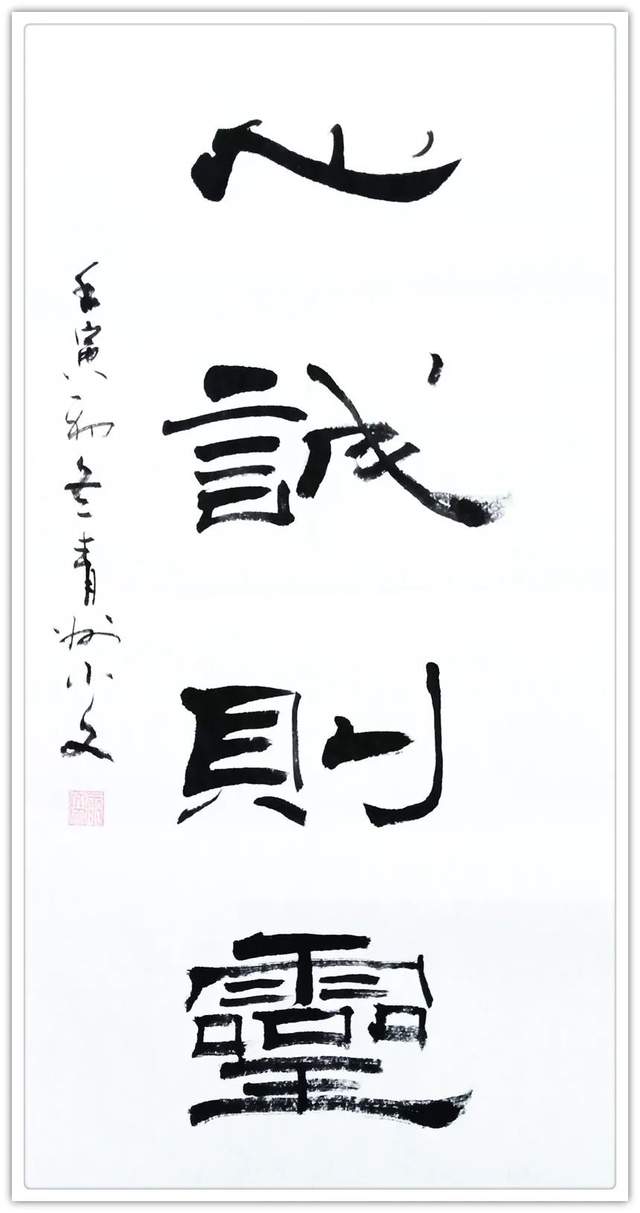 心誠則靈
壬寅初冬青州小文